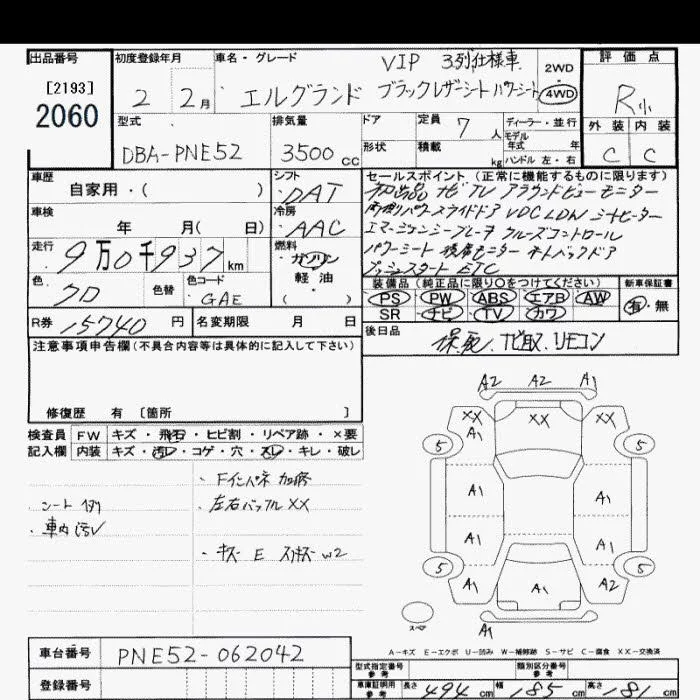 出品番号
[2193]
2060
初度登録年月
2 2月
車名・グレード
VIP 3列仕様車
エルグランド ブラックレザーシート パワーシート
2WD
4WD
評価点
R
外装 内装
C C
型式
DBA-PNE52
排気量
3500cc
ドア
形状
定員 7人
積載 kg
ディーラー・並行
モデル
年式 年
ハンドル 左・右
車歴
自家用・( )
シフト
DAT
セールスポイント(正常に機能するものに限ります)
ナビ TV アラウンドビューモニター
両側パワースライドドア VDC LDW シートヒーター
エマージェンシーブレーキ クルーズコントロール
パワーシート 後席モニター オートバックドア
プッシュスタート ETC
車検
年 月( 日)
冷房
AAC
走行
9万0千937km
燃料
ガソリン
軽油
( )
色
クロ
色替
色コード
GAE
装備品(純正品に限り○をつけてください)
新車保証書
PS PW ABS エアB AW
SR ナビ TV カワ
有・無
R券 15740円
名変期限 月 日
後日品
保、取、リモコン
注意事項申告欄(不具合内容等は具体的に記入して下さい)
修復歴 有 [箇所 ]
検査員 FW キズ・飛石・ヒビ割・リペア跡・×要
記入欄 内装 キズ・汚レ・コゲ・穴・スレ・キレ・破レ
・シート
・車内汚レ
・Fインパネ 加修
・左右バッフル XX
・キズ E スリキズ W2
A2 A2 A1
XX XX XX
A1
5 5
A1 A1
A1 A1
5 5
A1 A1 A2
スペア
A1
A-キズ E-エクボ U-凹み W-補修跡 S-サビ C-腐食 XX-交換済
車台番号 PNE52-062042
登録番号
型式指定番号
参考
類別区分番号
参考
車庫証明用
参考
長さ 494cm 幅 185cm 高さ 181cm